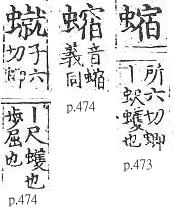 所六切蝍
丨蚇蠖也
p.473
音
義同
p.474
子六
切即
丨尺蠖也
步屈也
p.474